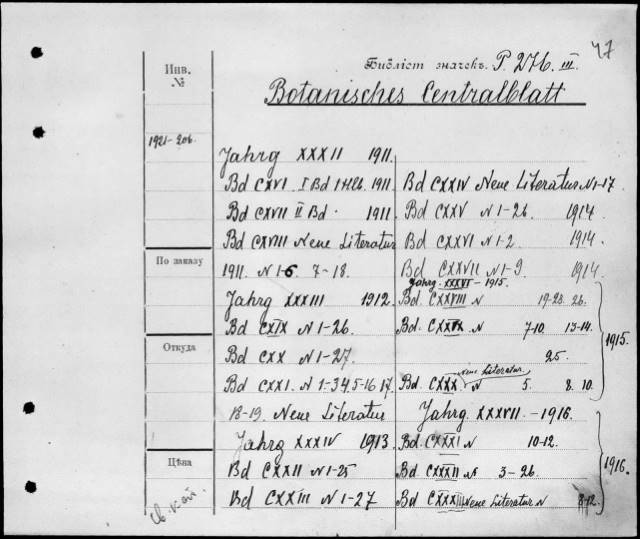 47
Библіот значекъ P. 276. III.
Botanisches Centralblatt
Инв.
№
1921-206.
По заказу
Откуда
Цѣна
Jahrg XXXII 1911.
Bd CXVI. I Bd 1 Hlb. 1911.
Bd CXVII II Bd. 1911.
Bd CXVIII Neue Literatur
1911. N 1-6 7-18.
Jahrg XXXIII 1912.
Bd CXIX N 1-26.
Bd CXX N 1-27.
Bd CXXI. N 1-3 4, 5-16 17.
18-19. Neue Literatur
Jahrg XXXIV 1913.
Bd CXXII N 1-25
Bd CXXIII N 1-27
Bd CXXIV Neue Literatur N 1-17
Bd CXXV N 1-26. 1914
Bd CXXVI N 1-2. 1914.
Bd CXXVII N 1-9. 1914.
Jahrg. XXXVI - 1915.
Bd. CXXVIII N 19-23. 26.
Bd. CXXIX N 7-10. 13-14.
25.
Neue Literatur
Bd. CXXX N 5. 8. 10.
1915.
Jahrg. XXXVII. - 1916.
Bd. CXXXI N 10-12.
Bd CXXXII N 3-26.
Bd CXXXIII Neue Literatur N 8-12.
1916.